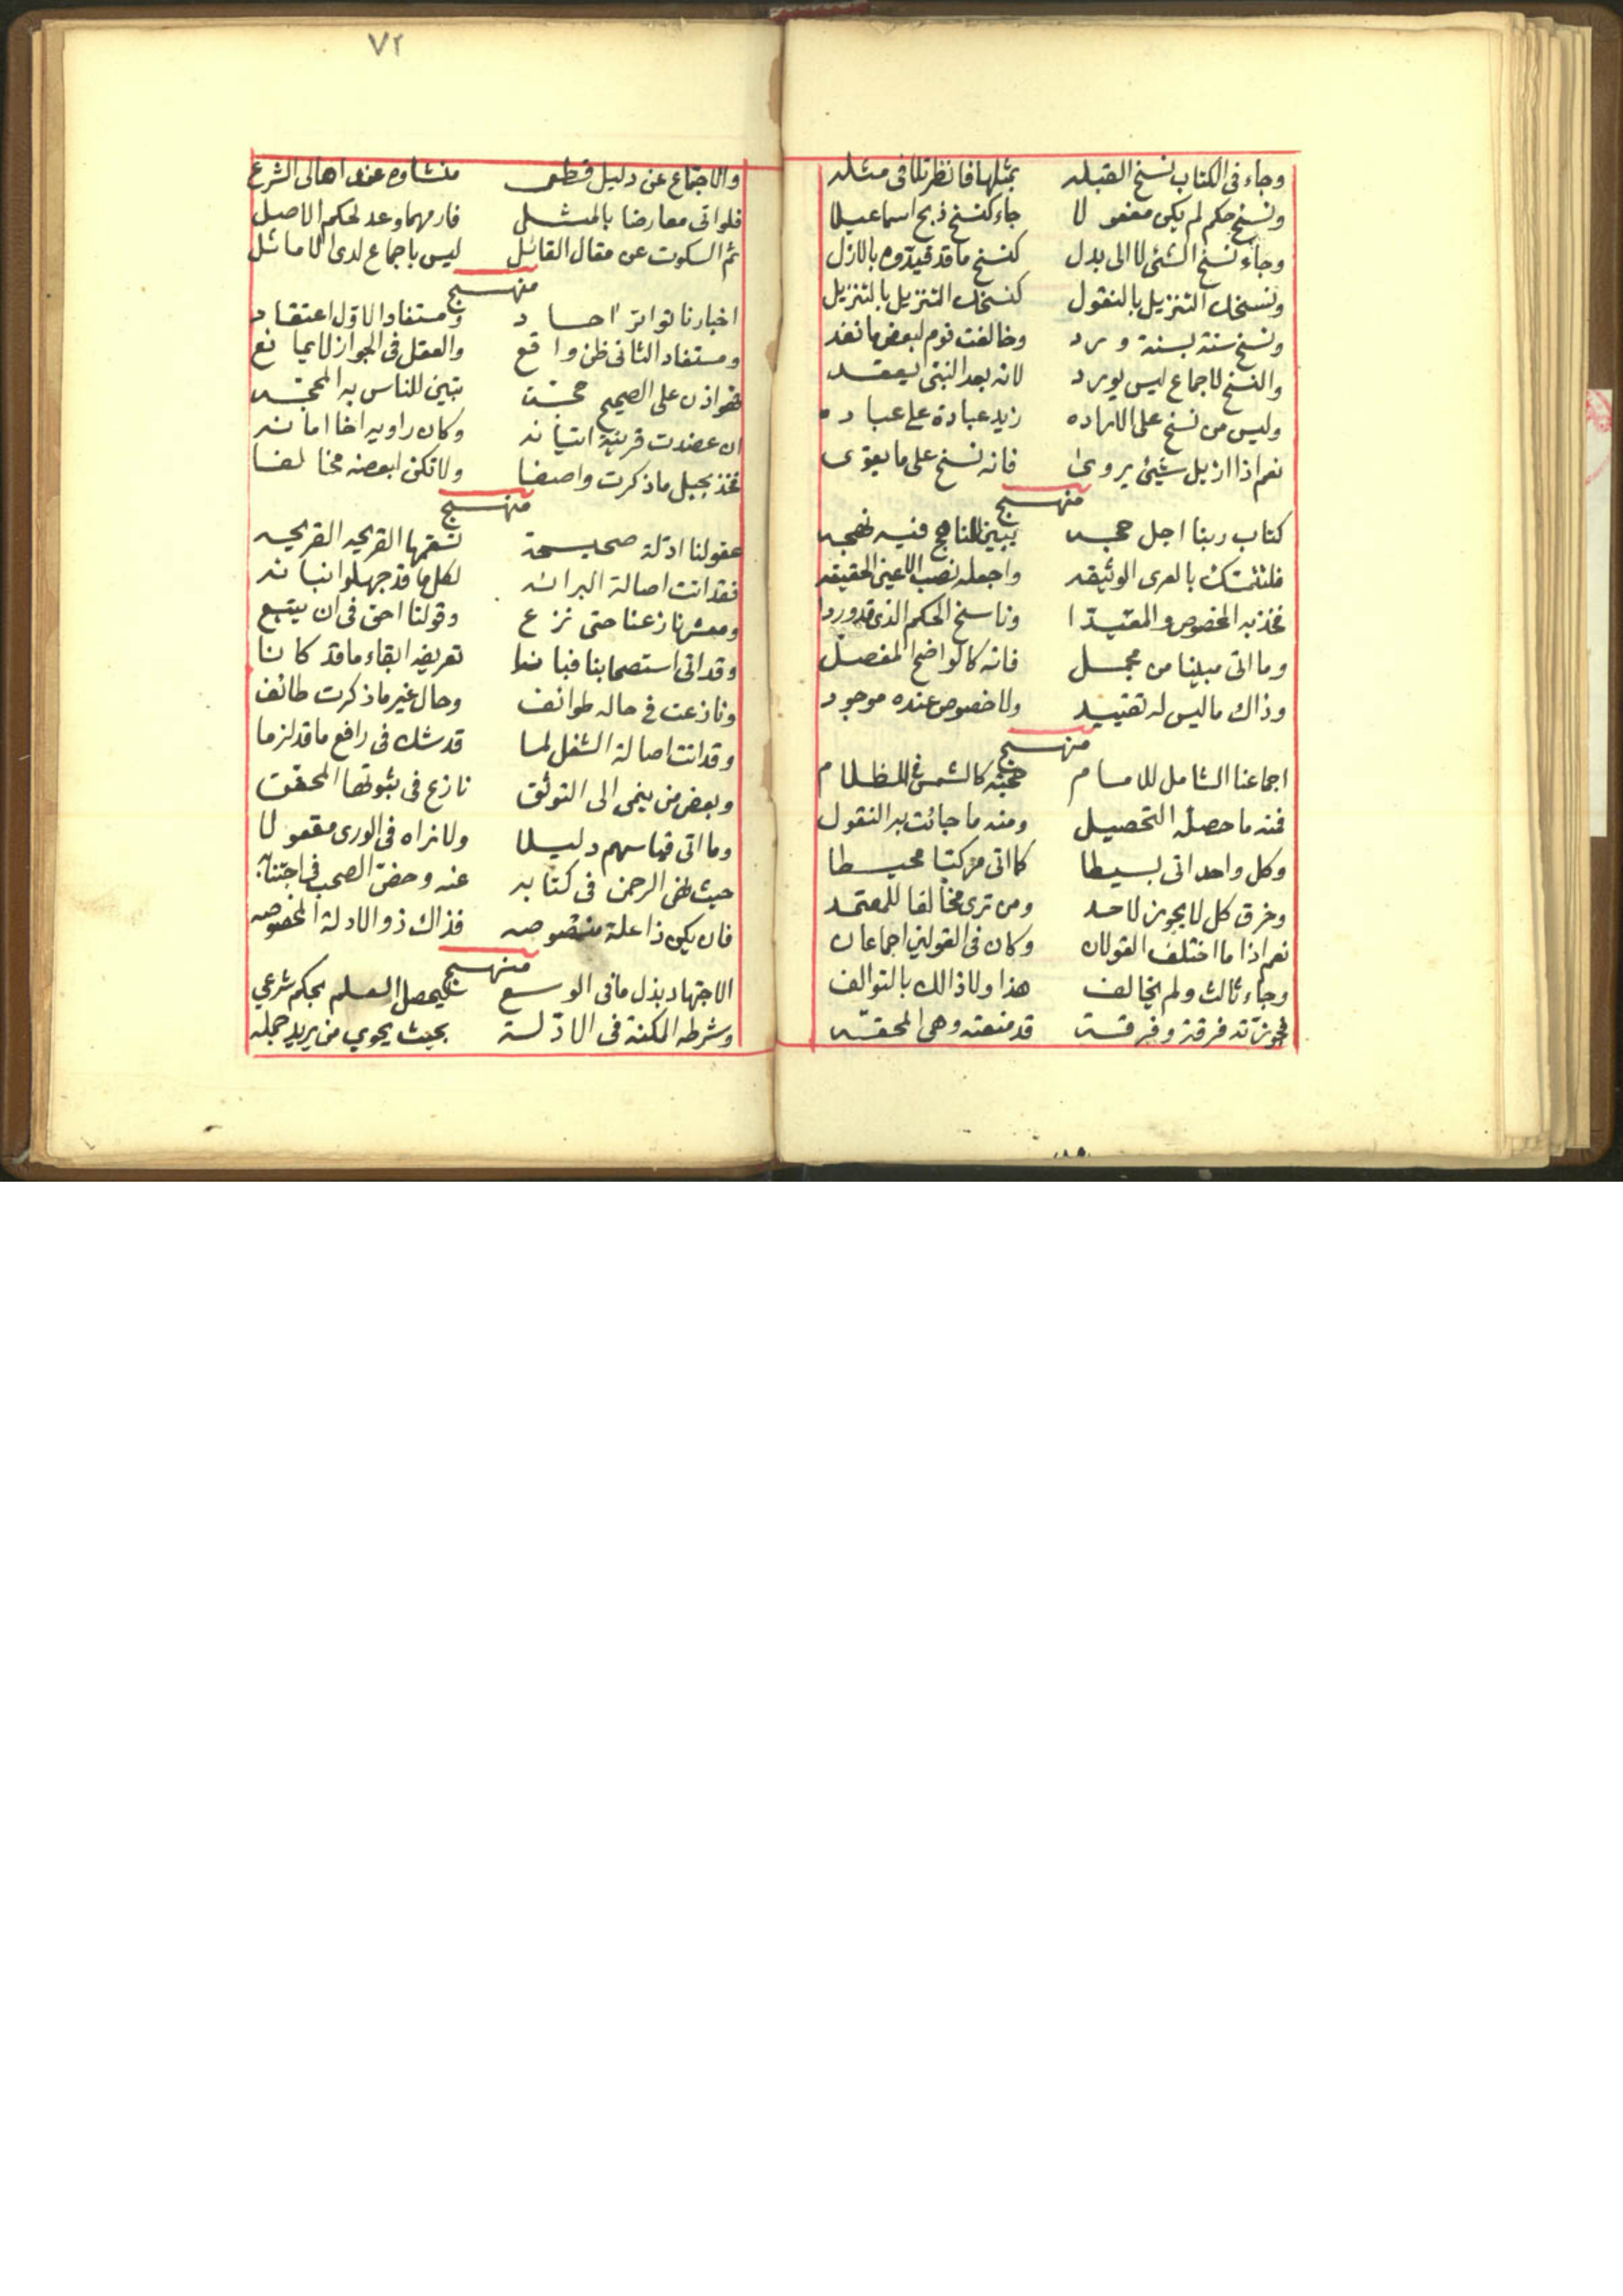 وجاء في الكتاب نسخ القبله بمثلها فانظر تلافى مثله
ونسخ حكم لم يكن مفعولا جاء كنسخ ذبح اسماعيلا
وجاء نسخ الشئ لا الى بدل كنسخ ما قد قيدوه بالازل
ونسخك التنزيل بالمنقول كنسخك التنزيل بالتنزيل
ونسخ سنة بسنة ورد وخالفت قوم لبعض ما نفد
والنسخ لاجماع ليس يورد لانه بعد النبي يعقد
وليس من نسخ على الاراده زيد عبادة على عباده
نعم اذا ازيل شيئ يروى فانه نسخ على ما يقوى
منهج
كتاب ربنا اجل حجه يبين المناهج فيه نهجه
فلنتمسك بالعرى الوثيقه واجعله نصب الاعين الحقيقه
فخذ به المخصوص والمقيدا وناسخ الحكم الذي قد وردا
وما اتى مبينا من مجمل فانه كالواضح المفصل
وذاك ما ليس له تقييد ولا خصوص عنده موجود
منهج
اجماعنا الشامل للامام حجته كالشمس في الظلام
فمنه ما حصله التحصيل ومنه ما جائت به النقول
وكل واحد اتى بسيطا كما اتى مركبا محيطا
وخرق كل لا يجوز لاحد ومن ترى مخالفا للمعتمد
نعم اذا ما اختلف القولان وكان في القولين اجماعان
وجاء ثالث ولم يخالف هذا ولا ذالك بالتوالف
فجوزته فرقة وفرقة قد منعته وهي المحقه
٧٢
والاجماع عن دليل قطعى منشاوه عند اهالى الشرع
فلو اتى معارضا بالمثل فارمهما وعد لحكم الاصل
ثم السكوت عن مقال القائل ليس باجماع لدى الاماثل
منهج
اخبارنا تواتر احاد ومستفاد الاول اعتقاد
ومستفاد الثانى ظن واقع والعقل فى الجواز لا يمانع
فهو اذن على الصحيح حجة تبين للناس به المحجه
ان عضدت قرينة اتيانه وكان راويه اخا امانه
فخذ بجبل ما ذكرت واصفا ولا تكن لبعضه مخالفا
منهج
عقولنا ادلة صحيحة تنتمها القريحه القريحه
فقد اتت اصالة البرائه لكل ما قد جهلوا انبائه
ومعشر نازعنا حتى نزع وقولنا احق فى ان يتبع
وقد اتى استصحابنا فبانا تعريفه ابقاء ما قد كانا
ونازعت في حاله طوائف وحال غير ما ذكرت طائف
وقد اتت اصالة الشغل لما قد شك فى رافع ما قد لزما
وبعض من ينمى الى التوثق نازع فى ثبوتها المحقق
وما اتى قياسهم دليلا ولا نراه فى الورى مقبولا
حيث نهى الرحمن فى كتابه عنه وحض الصحب فى اجتنابه
فان يكن ذا علة منصوصه فذاك ذو الادلة المخصوصه
منهج
الاجتهاد بذل ما فى الوسع ليحصل العلم بحكم شرعي
وشرطه المكنة فى الادلة بحيث يحوي من يريد جمله